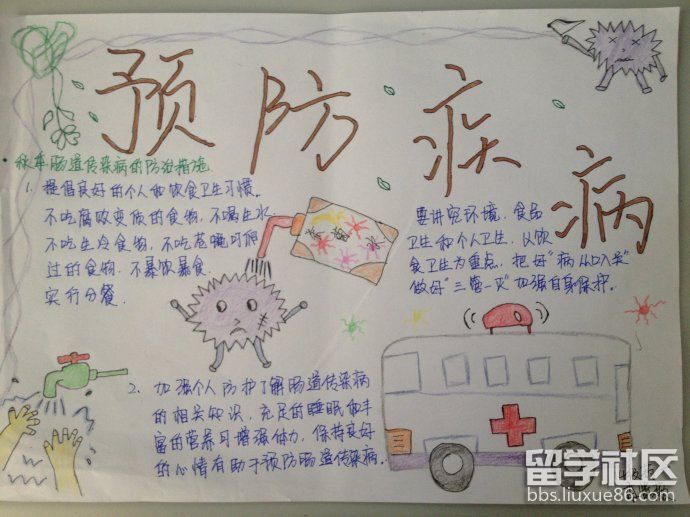 预防疾病
秋季肠道传染病的防治措施
1、提倡良好的个人和饮食卫生习惯。
不吃腐败变质的食物，不喝生水，
不吃生冷食物，不吃苍蝇叮爬
过的食物，不暴饮暴食，
实行分餐
要讲究环境、食品
卫生和个人卫生，以饮
食卫生为重点，把好“病从口入关”
做好“三管一灭”加强自身保护。
2、加强个人防护了解肠道传染病
的相关知识，充足的睡眠和丰
富的营养可增强体力，保持良好
的心情有助于预防肠道传染病。
留学社区
bbs.liuxue86.com